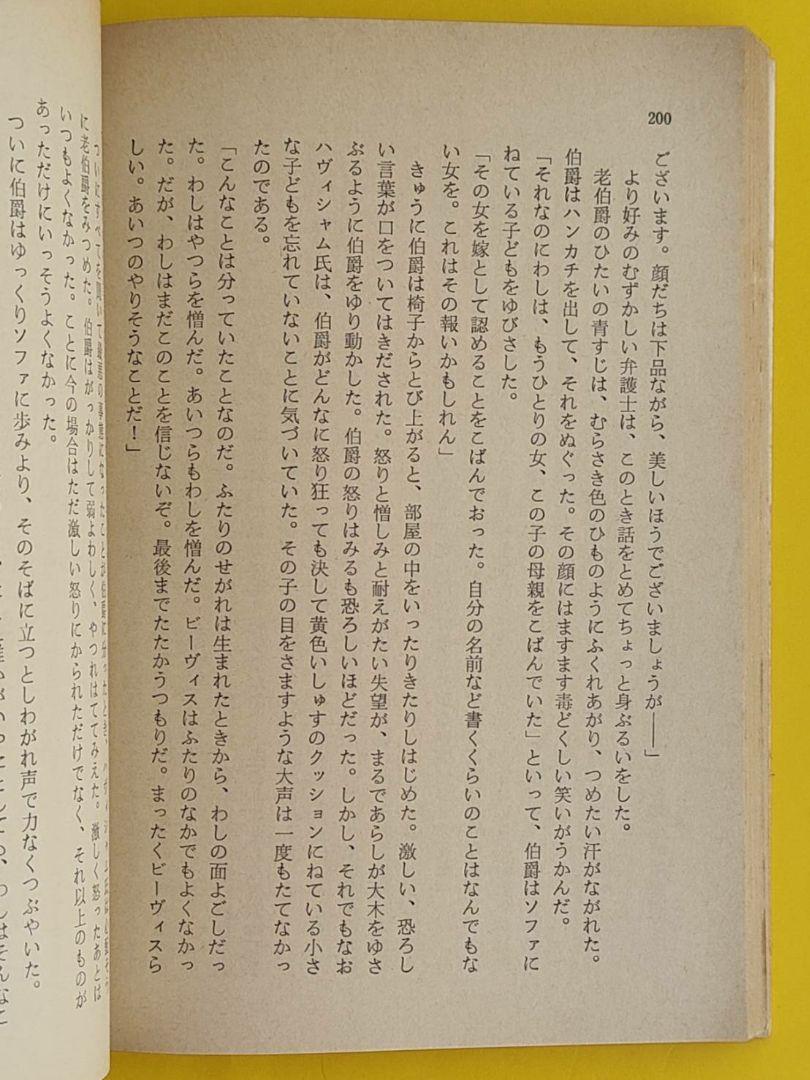 200
ございます。顔だちは下品ながら、美しいほうでございましょうが――」
より好みのむずかしい弁護士は、このとき話をとめてちょっと身ぶるいをした。
老伯爵のひたいの青すじは、むらさき色のひものようにふくれあがり、つめたい汗がながれた。
伯爵はハンカチを出して、それをぬぐった。その顔にはますます毒どくしい笑いがうかんだ。
「それなのにわしは、もうひとりの女、この子の母親をこばんでいた」といって、伯爵はソファに
ねている子どもをゆびさした。
「その女を嫁として認めることをこばんでおった。自分の名前など書くくらいのことはなんでもな
い女を。これはその報いかもしれん」
きゅうに伯爵は椅子からとび上がると、部屋の中をいったりきたりしはじめた。激しい、恐ろし
い言葉が口をついてはきだされた。怒りと憎しみと耐えがたい失望が、まるであらしが大木をゆさ
ぶるように伯爵をゆり動かした。伯爵の怒りはみるも恐ろしいほどだった。しかし、それでもなお
ハヴィシャム氏は、伯爵がどんなに怒り狂っても決して黄色いしゅすのクッションにねている小さ
な子どもを忘れていないことに気づいていた。その子の目をさますような大声は一度もたてなかっ
たのである。
「こんなことは分っていたことなのだ。ふたりのせがれは生まれたときから、わしの面よごしだっ
た。わしはやつらを憎んだ。あいつらもわしを憎んだ。ビーヴィスはふたりのなかでもよくなかっ
た。だが、わしはまだこのことを信じないぞ。最後までたたかうつもりだ。まったくビーヴィスら
しい。あいつのやりそうなことだ！」
ついにすべてを聞いて最悪の事態になったことが伯爵に分ったとき、
に老伯爵をみつめた。伯爵はがっかりして弱よわしく、やつれはててみえた。激しく怒ったあとは
いつもよくなかった。ことに今の場合はただ激しい怒りにかられただけでなく、それ以上のものが
あっただけにいっそうよくなかった。
ついに伯爵はゆっくりソファに歩みより、そのそばに立つとしわがれ声で力なくつぶやいた。